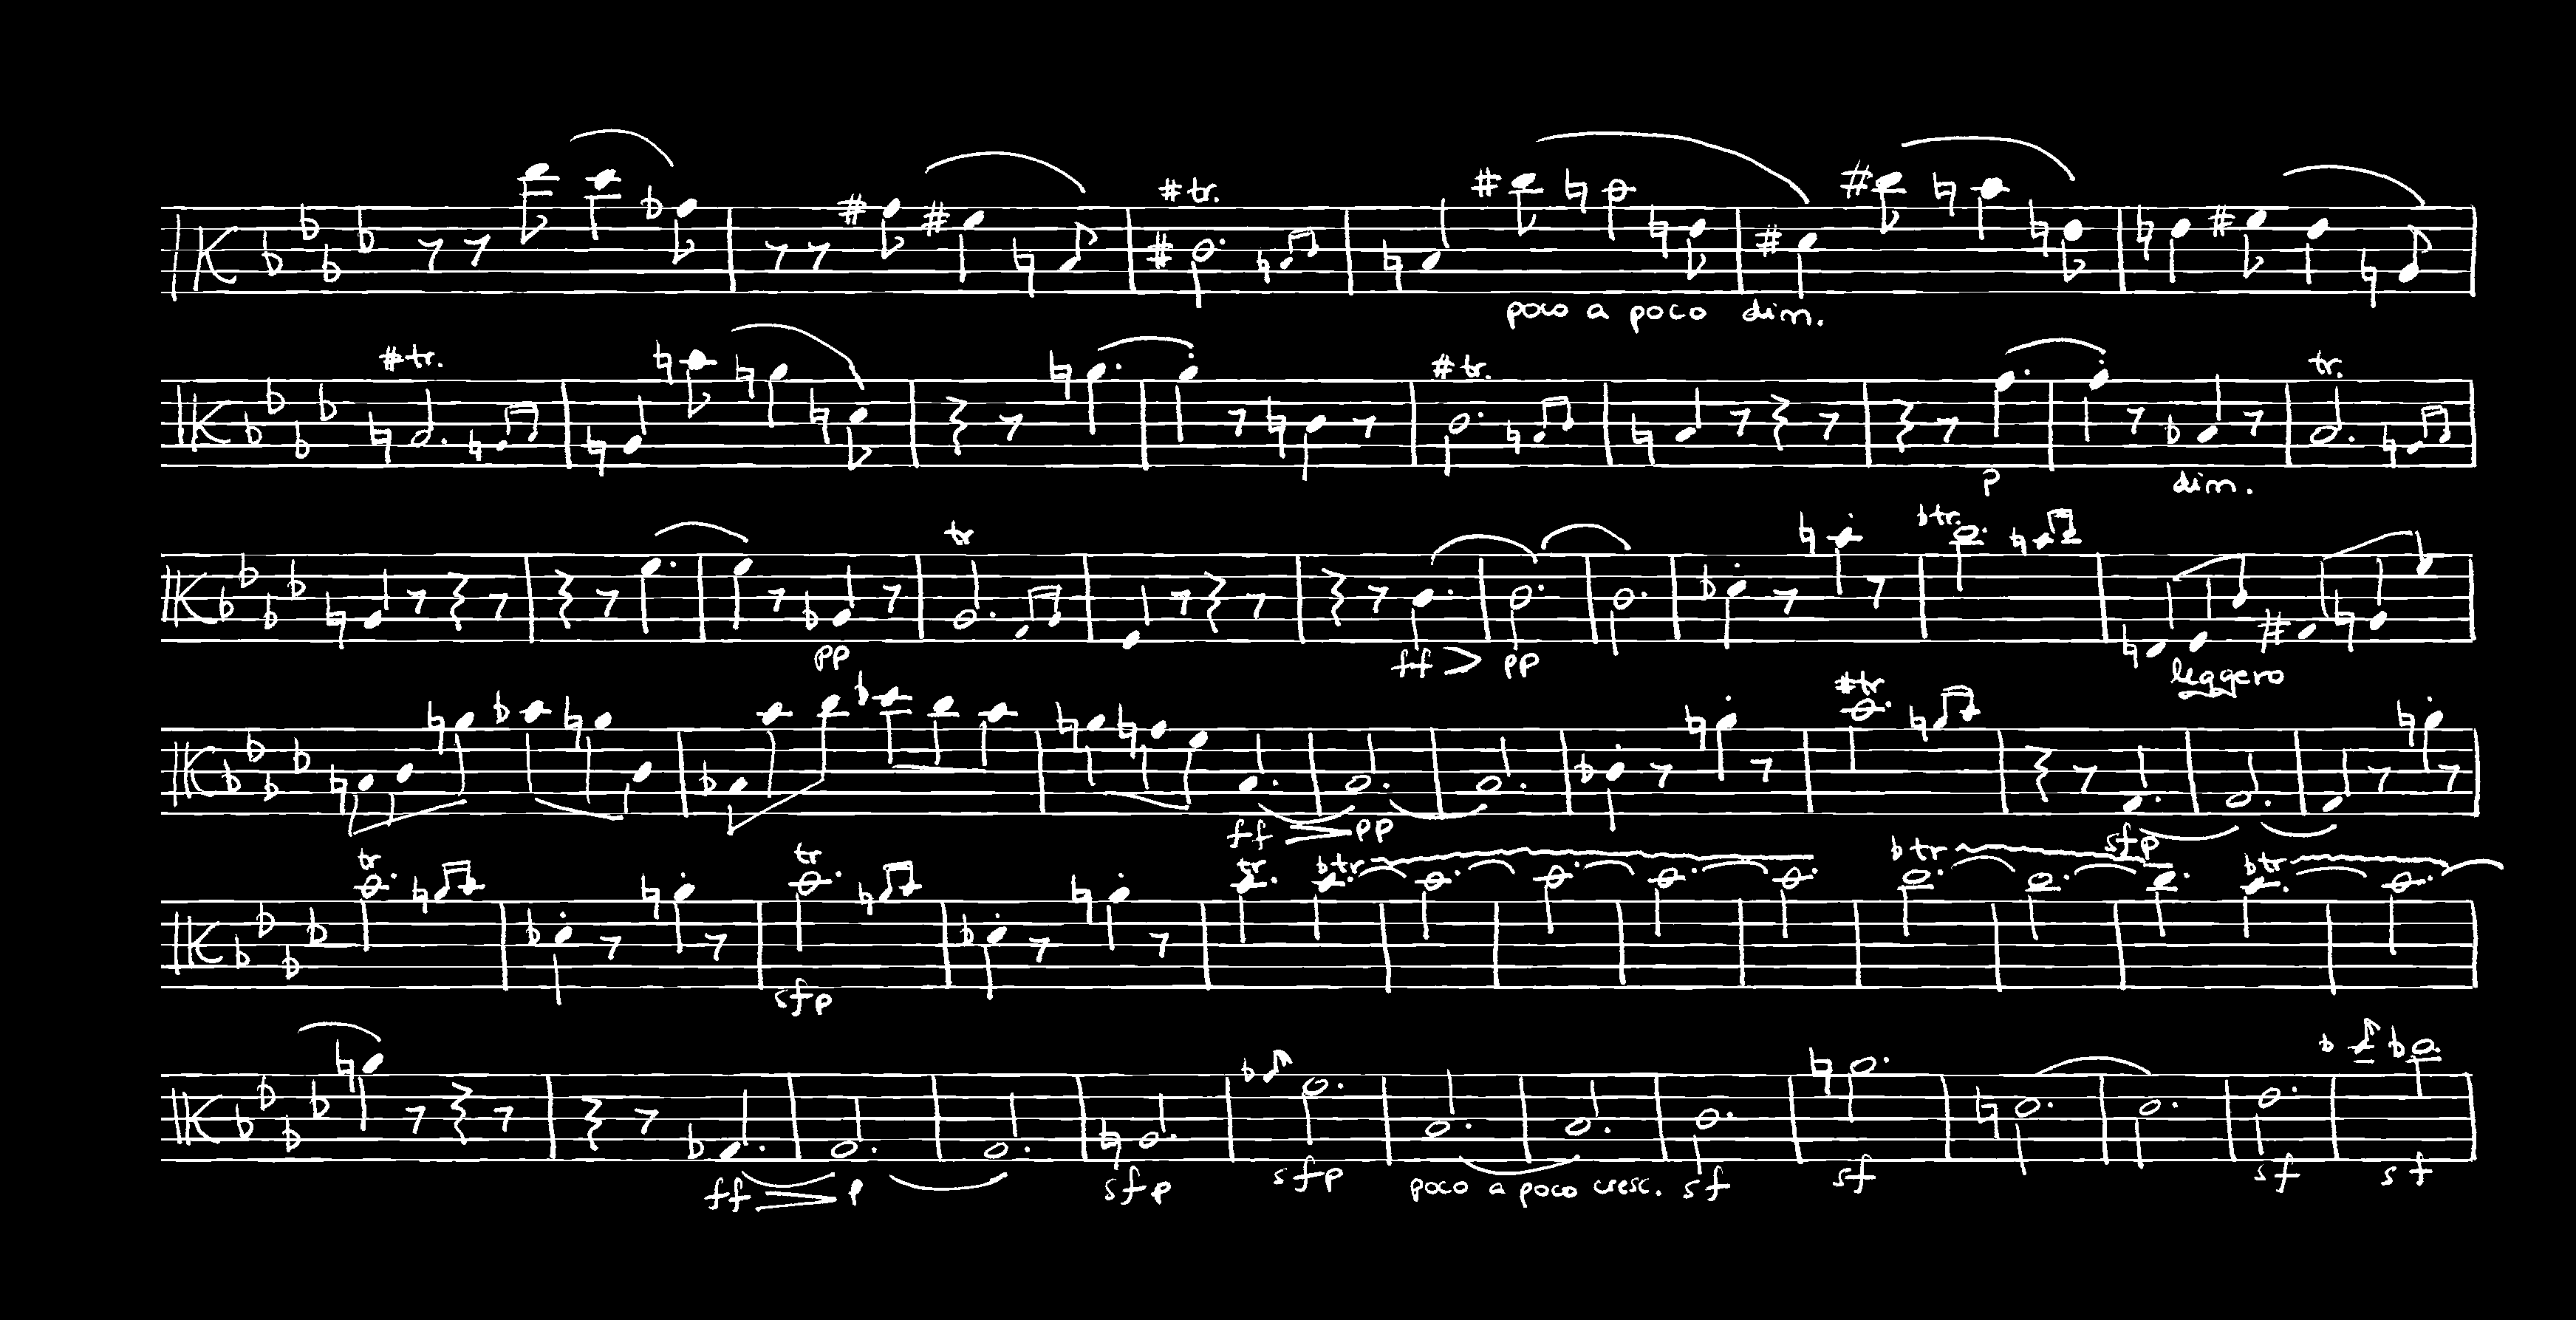 tr.
poco a poco dim.
tr. tr. tr.
p dim.
tr btr.
pp ff pp leggero
tr
ff pp sfp
tr tr tr. btr. btr btr
sfp
ff p sfp sfp poco a poco cresc. sf sf sf sf